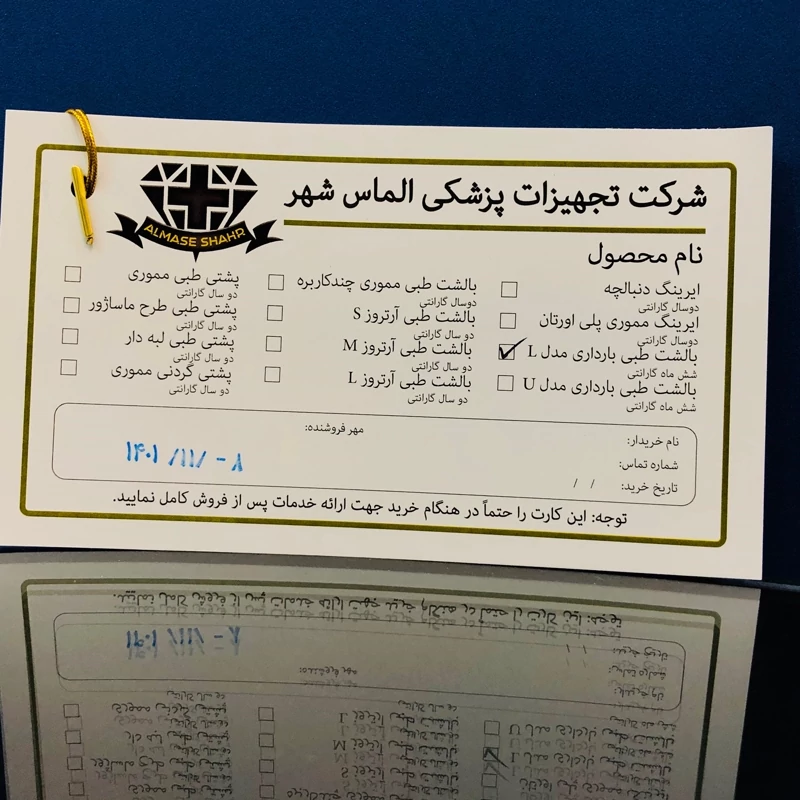 شرکت تجهیزات پزشکی الماس شهر
ALMASE SHAHR
نام محصول
ایرینگ دنبالچه
دوسال گارانتی
ایرینگ مموری پلی اورتان
دوسال گارانتی
بالشت طبی بارداری مدل L
شش ماه گارانتی
بالشت طبی بارداری مدل U
شش ماه گارانتی
بالشت طبی مموری چندکاربره
دوسال گارانتی
بالشت طبی آرتروز S
دو سال گارانتی
بالشت طبی آرتروز M
دو سال گارانتی
بالشت طبی آرتروز L
دو سال گارانتی
پشتی طبی مموری
دو سال گارانتی
پشتی طبی طرح ماساژور
دو سال گارانتی
پشتی طبی لبه دار
دو سال گارانتی
پشتی گردنی مموری
دو سال گارانتی
نام خریدار:
مهر فروشنده:
شماره تماس:
۱۴۰۱ /۱۱/ -۸
تاریخ خرید: / /
توجه: این کارت را حتماً در هنگام خرید جهت ارائه خدمات پس از فروش کامل نمایید.